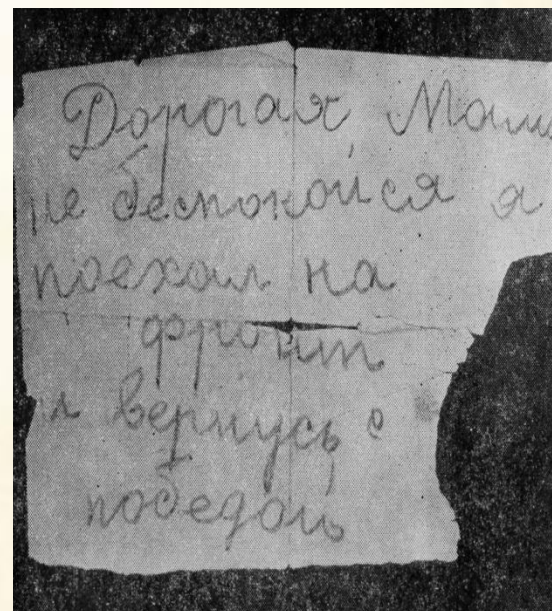 Дорогая Мама
не беспокойся я
поехал на
фронт
я вернусь с
победой